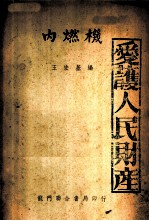 內燃機
王宏基編
龍門聯合書局印行
愛護人民財產